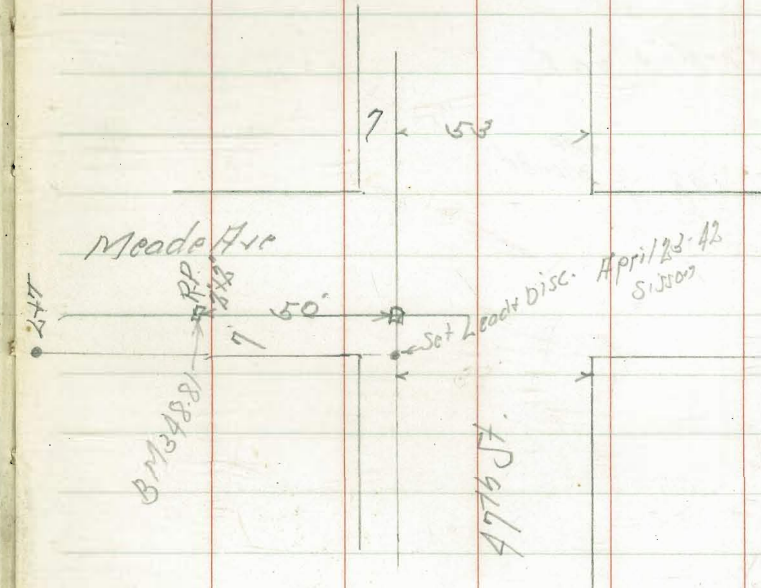 7 53
Meade Ave
RP.
2x2
50'
7
Set Lead & Disc. April 23-42
Sisson
BM 348.81
47th St.